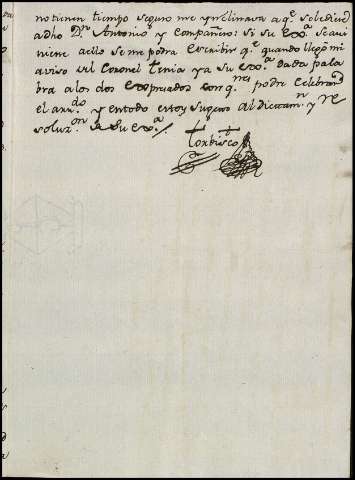 no tienen tiempo seguro me ynclinava a q.e se le diese
a dho D.n Antonio y Compañero: Si su Ex.a se aui
niene a ello se me podra escribir q.e quando llegó mi
aviso del Coronel tenia ya su Ex.a dada pala
bra a los dos expresados con q.nes podre celebrar
el arr.do y en todo estoy sugeto al dictam.n y re
soluz.on de su Ex.a